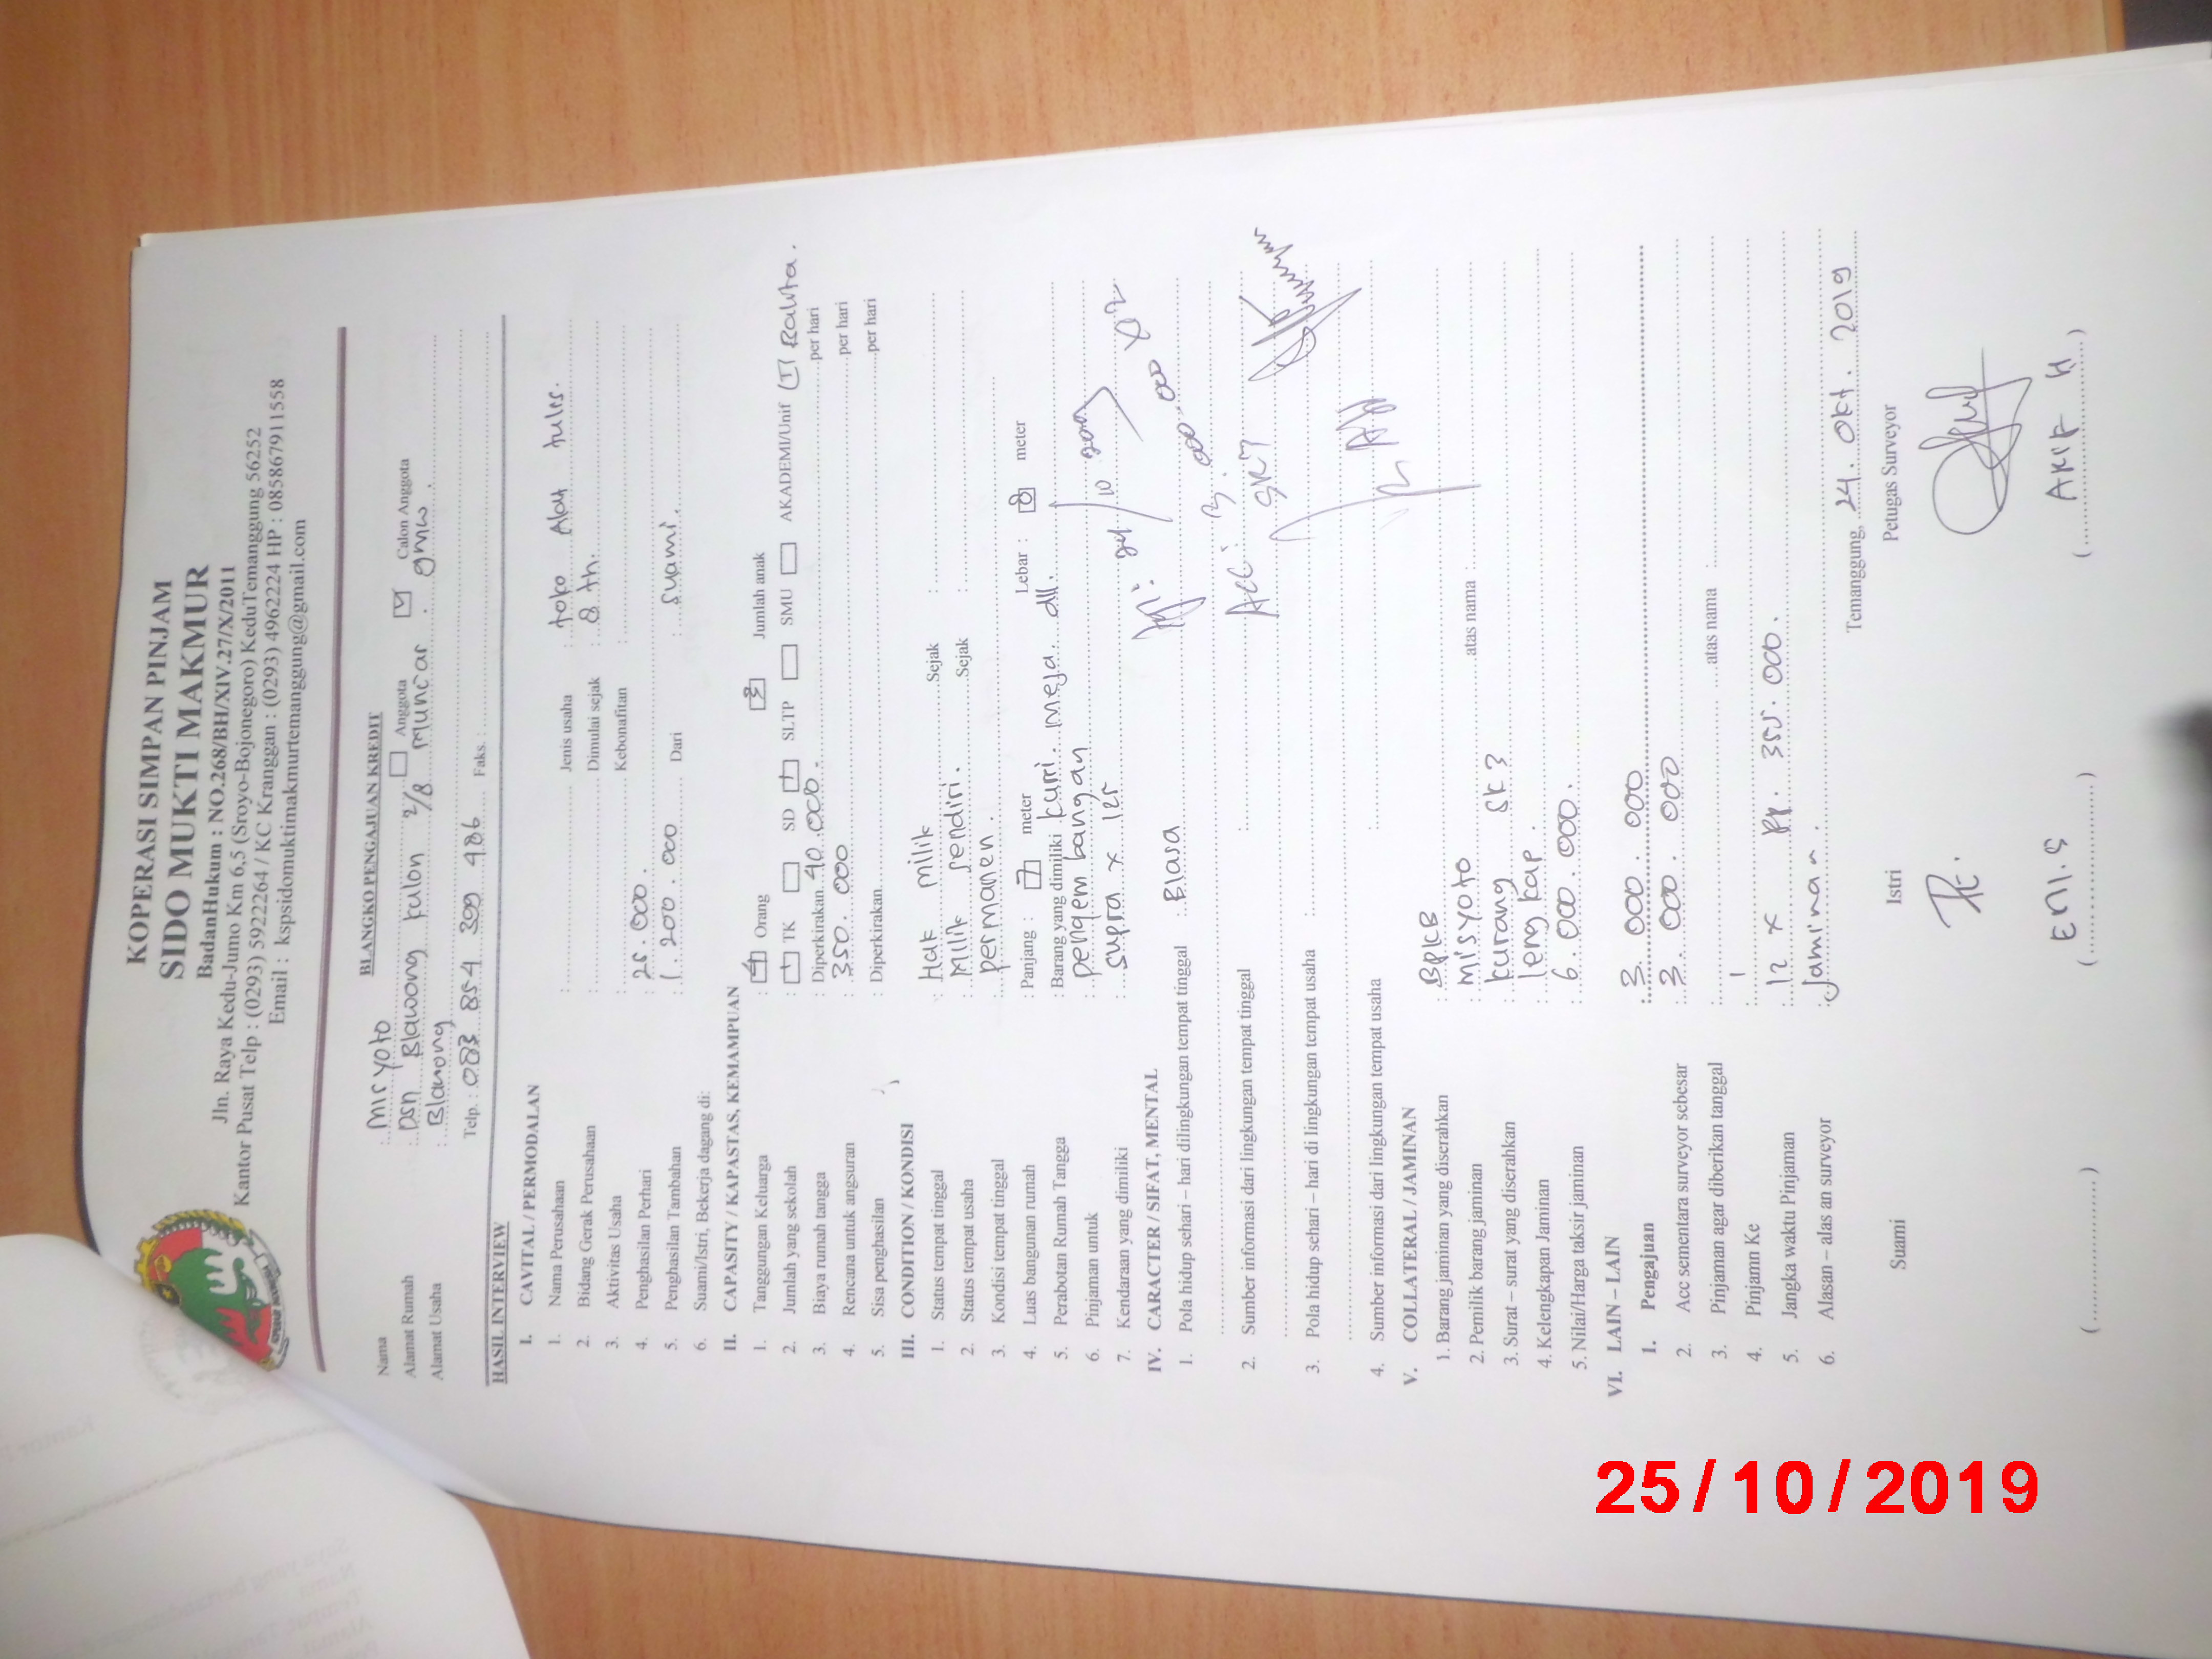 KOPERASI SIMPAN PINJAM
SIDO MUKTI MAKMUR
BadanHukum : NO.268/BH/XIV.27/X/2011
Jln. Raya Kedu-Jumo Km 6,5 (Sroyo-Bojonegoro) KeduTemanggung 56252
Kantor Pusat Telp : (0293) 5922264 / KC Kranggan : (0293) 4962224 HP : 085867911558
Email : kspsidomuktimakmurtemanggung@gmail.com
BLANGKO PENGAJUAN KREDIT
Nama : Misyoto Anggota Calon Anggota
Alamat Rumah : Dsn Blawong kulon 2/8 Muncar . gmw .
Alamat Usaha : Blawong
Telp. : 083 854 399 486 Faks. :
HASIL INTERVIEW
I. CAVITAL / PERMODALAN
1. Nama Perusahaan : Jenis usaha : toko Alat tulis.
2. Bidang Gerak Perusahaan : Dimulai sejak : 8 th.
3. Aktivitas Usaha : Kebonafitan :
4. Penghasilan Perhari : 25.000.
5. Penghasilan Tambahan : 1.200.000 Dari : suami.
6. Suami/Istri, Bekerja dagang di:
II. CAPASITY / KAPASTAS, KEMAMPUAN
1. Tanggungan Keluarga : 4 Orang 2 Jumlah anak
2. Jumlah yang sekolah : TK SD 1 SLTP SMU AKADEMI/Unif (1) Balita.
3. Biaya rumah tangga : Diperkirakan 40.000. per hari
4. Rencana untuk angsuran : 350.000 per hari
5. Sisa penghasilan : Diperkirakan per hari
III. CONDITION / KONDISI
1. Status tempat tinggal : Hak milik Sejak :
2. Status tempat usaha : Milik sendiri. Sejak :
3. Kondisi tempat tinggal : permanen.
4. Luas bangunan rumah : Panjang : 7 meter Lebar : 8 meter
5. Perabotan Rumah Tangga : Barang yang dimiliki kursi. meja. dll.
6. Pinjaman untuk : pengembangan
7. Kendaraan yang dimiliki : supra x 125
24/10 2019
IV. CARACTER / SIFAT, MENTAL
1. Pola hidup sehari – hari dilingkungan tempat tinggal : Biasa
2. Sumber informasi dari lingkungan tempat tinggal :
Acc : 3.000.000
3. Pola hidup sehari – hari di lingkungan tempat usaha :
4. Sumber informasi dari lingkungan tempat usaha :
V. COLLATERAL / JAMINAN
1. Barang jaminan yang diserahkan : BPKB
2. Pemilik barang jaminan : Misyoto atas nama :
3. Surat – surat yang diserahkan : kurang SK3
4. Kelengkapan Jaminan : lengkap.
5. Nilai/Harga taksir jaminan : 6.000.000.
VI. LAIN – LAIN
1. Pengajuan : 3.000.000
2. Acc sementara surveyor sebesar : 3.000.000
3. Pinjaman agar diberikan tanggal : atas nama :
4. Pinjamn Ke : 1
5. Jangka waktu Pinjaman : 12 x Rp. 350.000.
6. Alasan – alas an surveyor : Jaminan.
Temanggung, 24. Okt. 2019
Suami Istri Petugas Surveyor
(....................) Eni.S ARIF H
25/10/2019